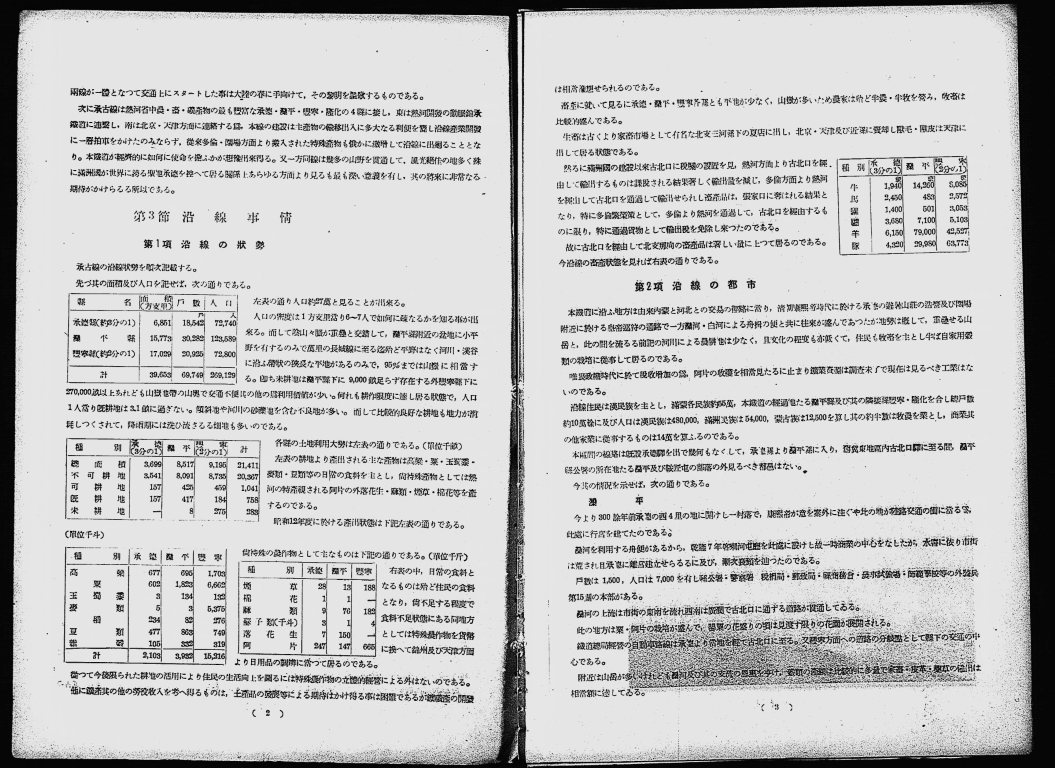 兩線が一體となつて交通上にスタートした事は大陸の春に手向けて、その黎明を謳歌するものである。
次に承古線は熱河省中農・畜・礦産物の最も豐富な承德・灤平・豐寧・隆化の4縣に接し、東は熱河開發の
鐵道に連繫し、南は北京・天津方面に連絡する爲、本線の建設は生産物の搬移出入に多大なる利便を齎し沿線産業開發
に一層拍車をかけたのみならず、從來多倫・圍場方面より搬入された特殊産物も俄かに激增して沿線に出廻ることとな
り。本鐵道が經濟的に如何に使命を擔ふかが想像出來得る。又一方同線は幾多の山野を貫通して、風光絕佳の地多く殊
に滿洲國が世界に誇る聖地承德を控へて居る關係上あらゆる方面より見るも最も深い意義を有し、其の將來に非常なる
期待がかけらるる所以である。
第3節 沿線事情
第1項 沿線の狀勢
承古線の沿線狀勢を順次記載する。
先づ其の面積及び人口を記せば、次の通りである。
縣名 面積(方支里) 戶數 人口
承德縣(約3分の1) 6,851 18,542 72,740
灤平縣 15,773 30,282 123,589
豐寧縣(約3分の1) 17,029 20,925 72,800
計 39,653 69,749 269,129
左表の通り人口約27萬と見ることが出來る。
人口の密度は1方支里當り6~7人で如何に疎なるかを知る事が出
來る。而して陰山々脈が重疊と交錯して、灤平縣附近の盆地に小平
野を有するのみで萬里の長城線に至る迄殆ど平野はなく河川・溪谷
に沿ふ帶狀の狹長な平地があるのみで、95%までは山嶽に相當す
る。卽ち未耕地は灤平縣下に9,000畝足らず存在する外豐寧縣下に
270,000畝以上あれども山嶽地帶の山塊で交通不便其の他の爲利用價値が少い。何れも耕作限度に達し居る狀態で、人口
1人當り旣耕地は3.1畝に過ぎない。傾斜地や河川の砂礫地を含む不良地が多い。而して比較的良好な耕地も地力が消
耗しつくされて、降雨期には洗ひ流さるる畑地も多いのである。
種別 承德(3分の1) 灤平 豐寧(2分の1) 計
總面積 3,699 8,517 9,195 21,411
不可耕地 3,541 8,091 8,735 20,367
可耕地 157 425 459 1,041
旣耕地 157 417 184 758
未耕地 — 8 275 283
各縣の土地利用大勢は左表の通りである。(單位千畝)
左表の耕地より産出される主な産物は高粱・粟・玉蜀黍・
麥類・豆類等の日常の食料を主とし、尙特殊産物としては熱
河の特産視される阿片の外落花生・麻類・煙草・棉花等を産
するのである。
昭和12年度に於ける産出狀態は下記左表の通りである。
(單位千斗)
種別 承德 灤平 豐寧
高粱 677 695 1,703
粟 602 1,823 6,662
玉蜀黍 3 134 132
麥類 5 3 5,375
稻 234 82 276
豆類 477 863 749
雜穀 105 332 319
計 2,103 3,932 15,216
尙特殊の農作物として主なものは下記の通りである。(單位千斤)
種別 承德 灤平 豐寧
煙草 28 13 188
棉花 1 1 —
麻類 9 76 182
蘇子類(千斗) 3 1 4
落花生 7 150 —
阿片 247 147 665
右表の中、日常の食料と
なるものは殆ど住民の食料
となり、尙不足する程度で
食料不足狀態にある同地方
としては特殊農作物を貨幣
に換へて錦州及び天津方面
より日用品の調辨に當つて居るのである。
從つて今後限られた耕地の活用により住民の生活向上を圖るには特殊農作物の立體的經營による外はないのである。
他に礦産其の他の勞役收入を考へ得るものは、土産品の發展等による期待はかけ得る事は困難であるが礦産の開發
( 2 )
は相當豫想せられるのである。
畜産に就いて見るに承德・灤平・豐寧各縣とも平地が少なく、山嶽が多いため農家は殆ど半農・半牧を營み、牧畜は
比較的盛んである。
生畜は古くより家畜市場として有名な北支三河縣下の夏店に出し、北京・天津及び近縣に賣却し獸毛・獸皮は天津に
出して居る狀態である。
然るに滿洲國の建設以來古北口に稅關の設置を見、熱河方面より古北口を經
由して輸出するものは課稅される結果著しく輸出量を減じ、多倫方面より熱河
を經由して古北口を通過して輸出せられし畜産品は、張家口に奪はれる結果と
なり、特に多倫繁榮策として、多倫より熱河を通過して、古北口を經由するも
のに限り、特に通過貨物として輸出稅を免除し來つたのである。
故に古北口を經由して北支方向の畜産品は著しい量に上つて居るのである。
今沿線の畜産狀態を見れば右表の通りである。
種別 承德(3分の1) 灤平 豐寧(2分の1)
牛 1,940 14,260 3,085
馬 2,450 483 2,572
騾 1,400 501 3,053
驢 3,680 7,100 5,103
羊 6,150 79,000 42,527
豚 4,320 29,980 63,773
第2項 沿線の都市
本鐵道に沿ふ地方は由來內蒙と河北との交易の衝路に當り、淸朝康熙帝時代に於ける承德の避暑山莊の造營及び圍場
附近に於ける皇帝巡狩の通路で一方灤河・白河による舟楫の便と共に往來が盛んであつたが地勢は嶮して、重疊せる山
嶽と、此の間を流るる前記の河川による農耕地は少なく、且文化の程度も亦低くて、住民も牧畜を主とし半ば自家用穀
類の栽培に從事して居るのである。
唯舊政權時代に於て稅收增加の爲、阿片の收獲を相當見たるに止まり鑛業資源は調査未了で現在は見るべき工業はな
いのである。
沿線住民は漢民族を主とし、滿蒙各民族約55萬、本鐵道の經過地たる灤平縣及び其の隣接縣豐寧・隆化を合し總戶數
約10萬餘に及び人口は漢民族は480,000、滿洲民族は54,000、蒙古族は12,500を算し其の約半數は牧農を業とし、商業其
の他家業に從事するものは14萬を算ふるのである。
本區間の線路は既設承德驛を出で幾何もなくして、承德縣より灤平縣に入り、西南東地區內古北口驛に至る間、灤平
縣公署の所在地たる灤平及び鞍匠屯の部落の外見るべき都邑はない。
今其の情況を示せば、次の通りである。
灤平
今より300餘年前承德の西4里の地に開けし一村落で、康熙帝が意を塞外に注ぐや此の地が陸路交通の衝に當る爲、
此處に行宮を建てたのである。
灤河を利用する舟便があるから、乾隆7年喀喇河屯廳を此處に設けし故一時商業の中心をなしたが、水害に依り市街
は荒され且承德に離宮建立せらるるに及び、漸次衰頽を辿つたのである。
戶數は1,500、人口は7,000を有し縣公署・警察署 稅捐局・郵政局・縣商務會・農事試驗場・師範學校等の外騎兵
第15連の本部がある。
灤河の上流は市街の東南を流れ西南は廣濶で古北口に通ずる道路が貫通してゐる。
此の地方は粟・阿片の栽培が盛んで、罌粟の花盛りの頃は見渡す限りの花園が展開される。
鐵道總局經營の自動車路線は承德より當地を經て古北口に至る。又豐寧方面への道路の分岐點として縣下の交通の中
心である。
附近は山嶽が多いけれども灤河及び其の支流の恩惠を享け、
相當額に達してゐる。
( 3 )